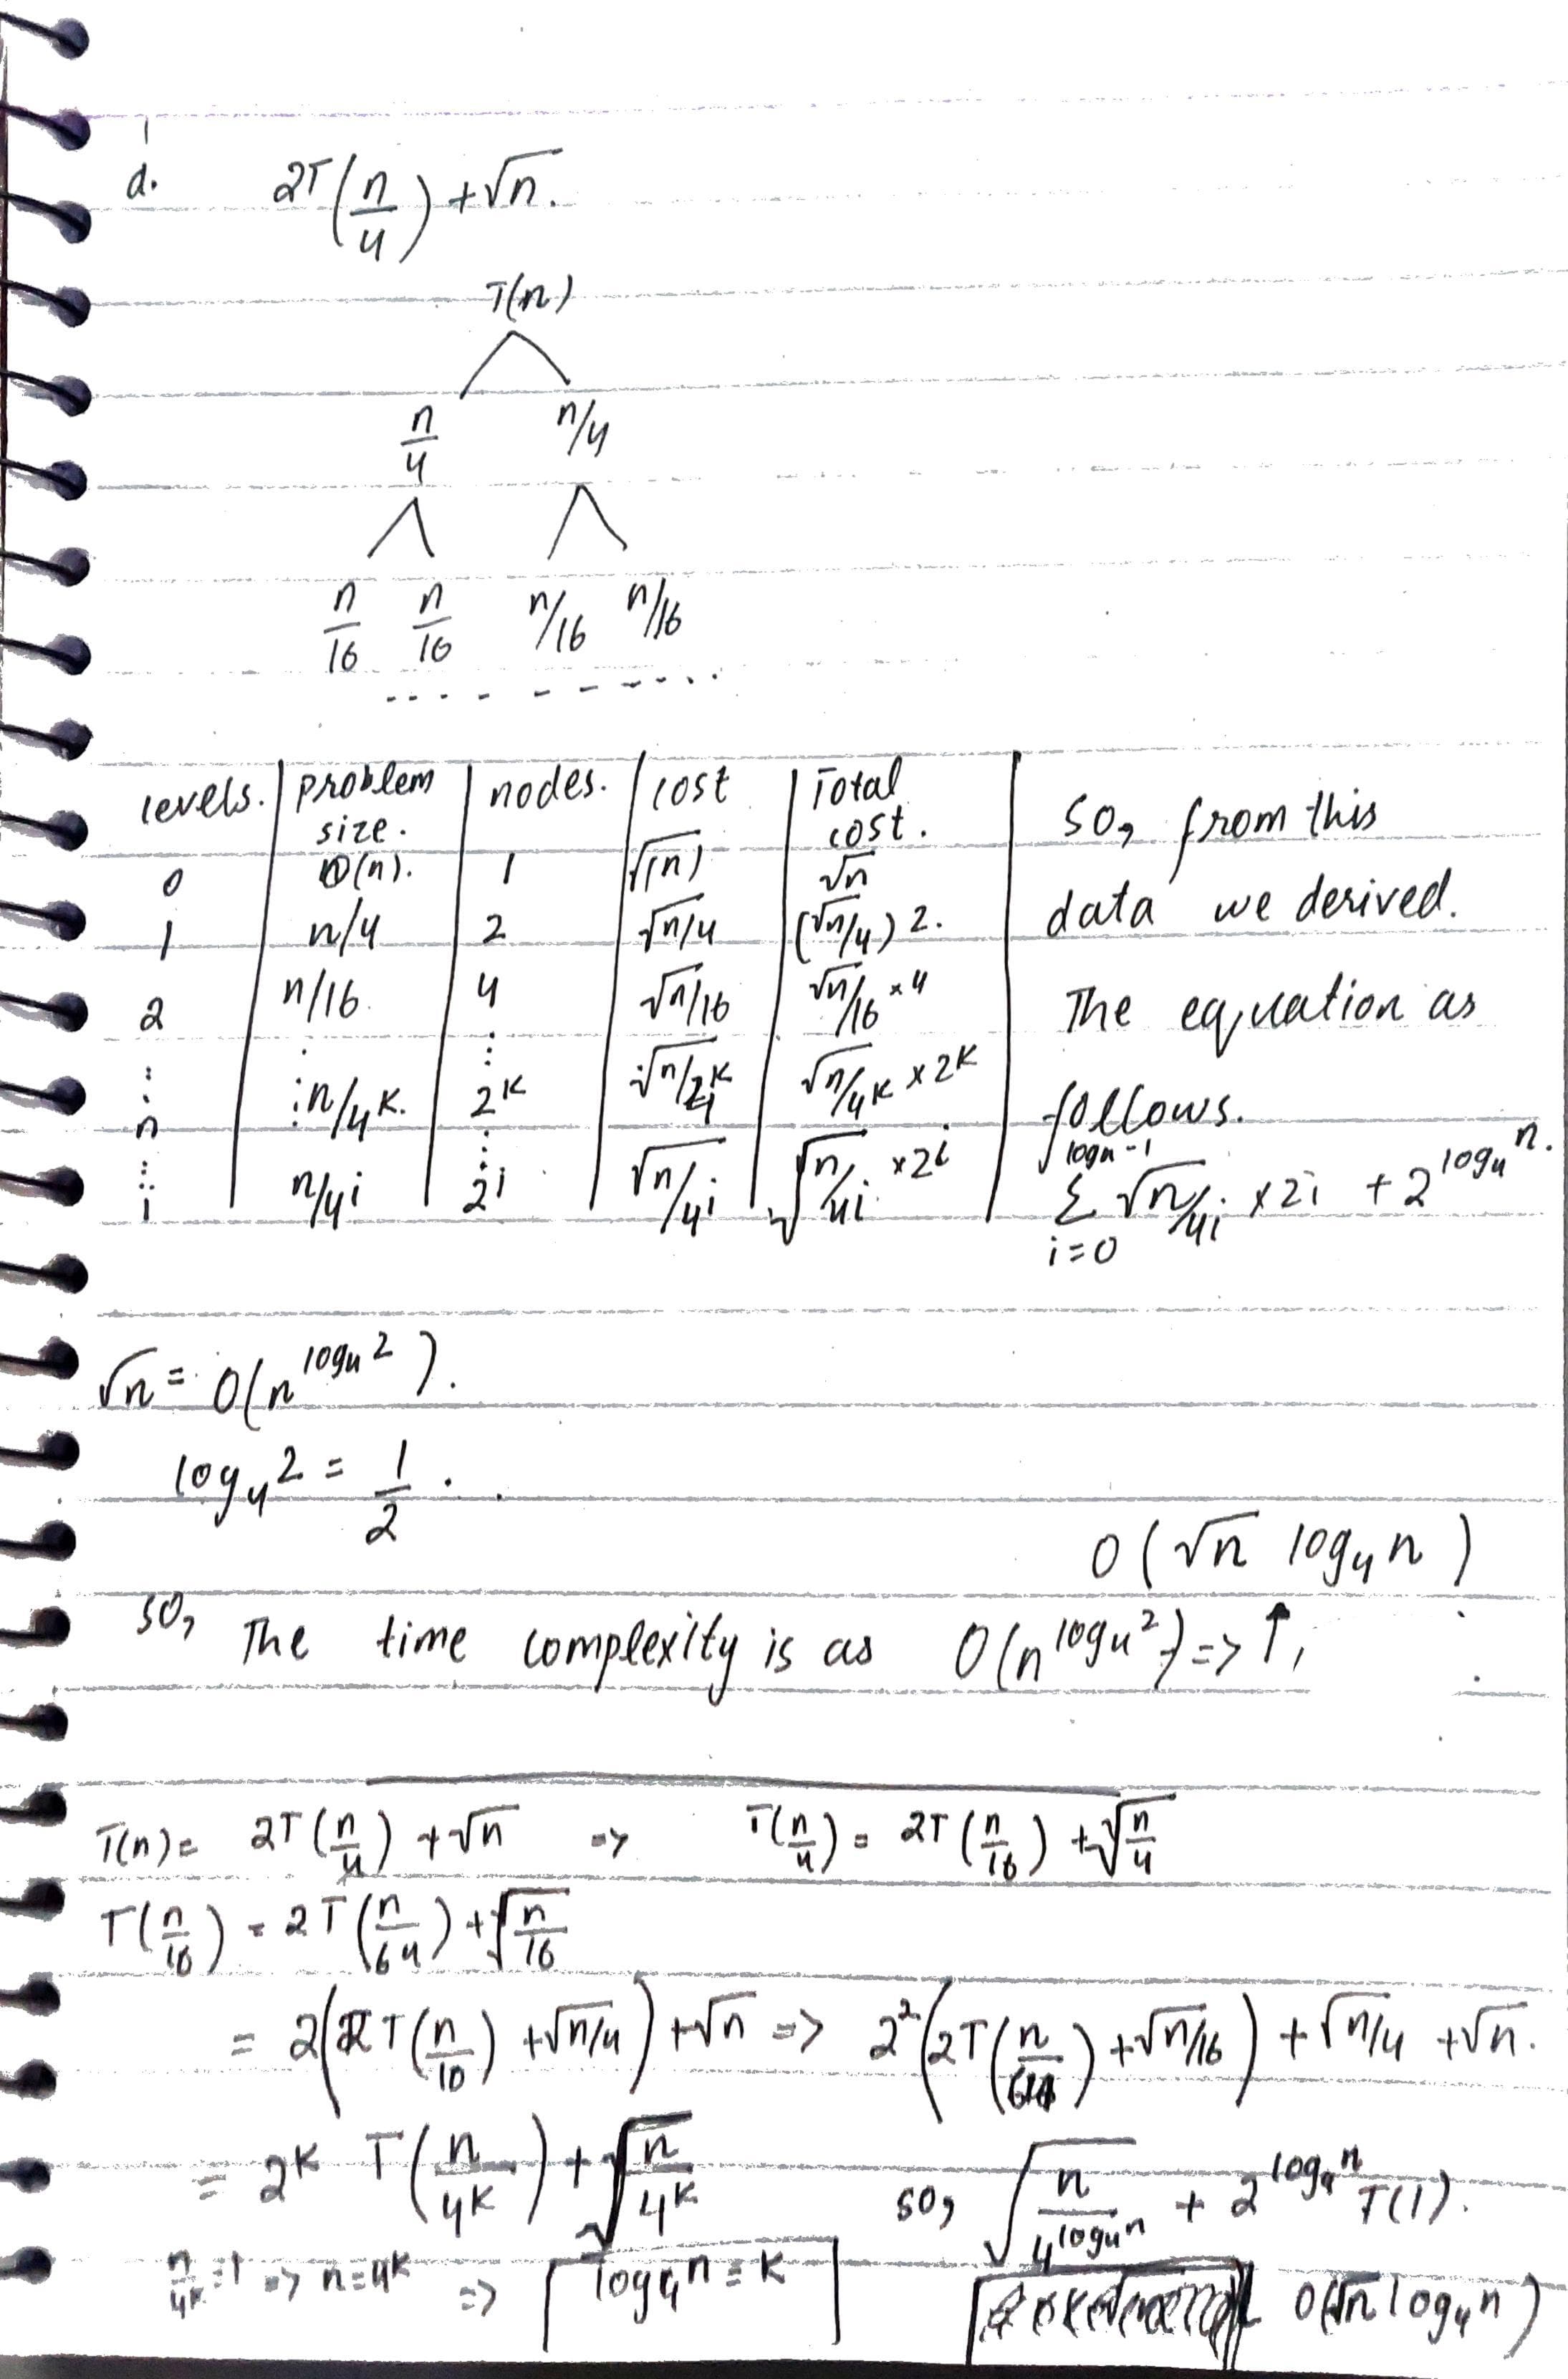 d. 2T(n/4) + √n.
T(n)
n/4 n/4
n/16 n/16 n/16 n/16
- - - - - - - - . .
levels. | problem size. | nodes. | cost | Total cost.
0 | (n). | 1 | √(n) | √n
1 | n/4 | 2 | √n/4 | (√n/4) 2.
2 | n/16 | 4 | √n/16 | √n/16 × 4
⋮ n | ⋮ n/4^k. | ⋮ 2^k | √n/4^k | √n/4^k × 2^k
⋮ i | n/4^i | ⋮ 2^i | √n/4^i | √n/4^i × 2^i
so, from this
data we derived.
The equation as
follows.
Σ_{i=0}^{log_4-1} √n/4^i × 2^i + 2^{log_4 n}.
√n = O(n^{log_4 2}).
log_4 2 = 1/2 .
O(√n log_4 n)
so, The time complexity is as O(n^{log_4 2}) => ↑,
T(n) = 2T(n/4) + √n => T(n/4) = 2T(n/16) + √(n/4)
T(n/16) = 2T(n/64) + √(n/16)
= 2(2T(n/16) + √n/4) + √n => 2²(2T(n/64) + √n/16) + √n/4 + √n.
= 2^k T(n/4^k) + √(n/4^k) so, √(n/4^{log_4 n}) + 2^{log_4 n} T(1).
n/4^k = 1 => n = 4^k => log_4 n = k O(√n log_4 n)